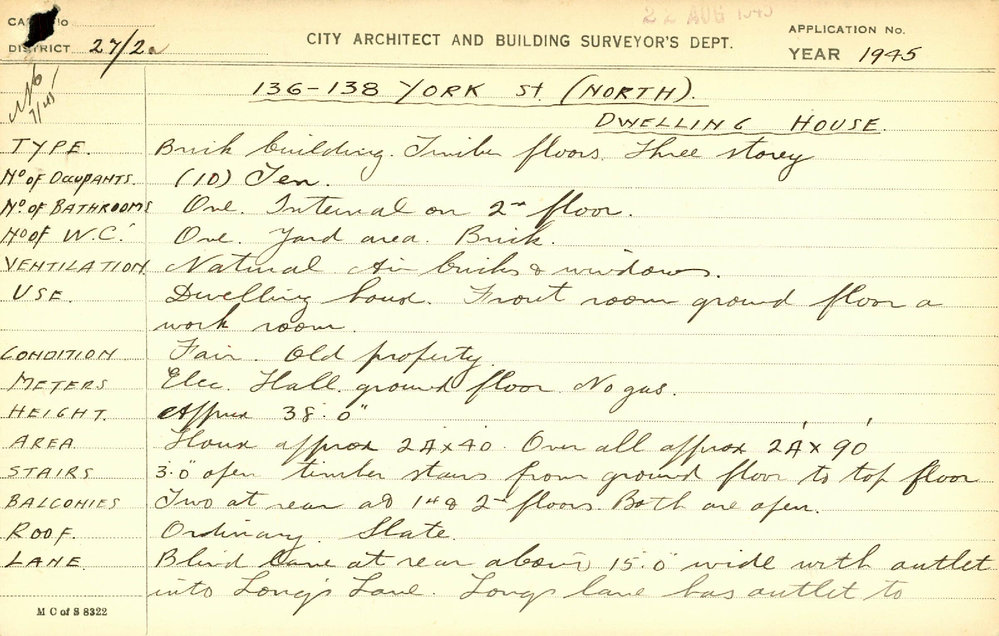 22 AUG 1945
CARD No
DISTRICT 27/2a
CITY ARCHITECT AND BUILDING SURVEYOR'S DEPT.
APPLICATION No.
YEAR 1945
136-138 YORK St. (NORTH).
DWELLING HOUSE.
TYPE. Brick building. Timber floors. Three storey
No of OCCUPANTS. (10) Ten.
No. of BATHROOMS One. Internal on 2nd floor.
No of W.C. One. Yard area. Brick.
VENTILATION. Natural Air bricks & windows.
USE. Dwelling house. Front room ground floor a
work room.
CONDITION Fair. Old property
METERS Elec. Hall ground floor. No gas.
HEIGHT. Approx 38'.0"
AREA House approx × 40. Over all approx × 90'
STAIRS 3'.0" open timber stairs from ground floor to top floor
BALCONIES Two at rear at 1st & 2nd floors. Both are open.
ROOF. Ordinary. Slate.
LANE. Blind Lane at rear about 15'.0" wide with outlet
into Longs Lane. Longs lane has outlet to
M C of S 8322